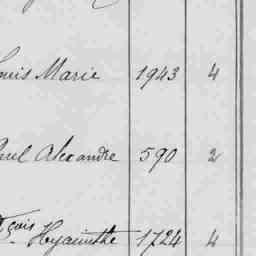 Louis Marie 1943 4
Paul Alexandre 590 2
Fçois Hyacinthe 1724 4